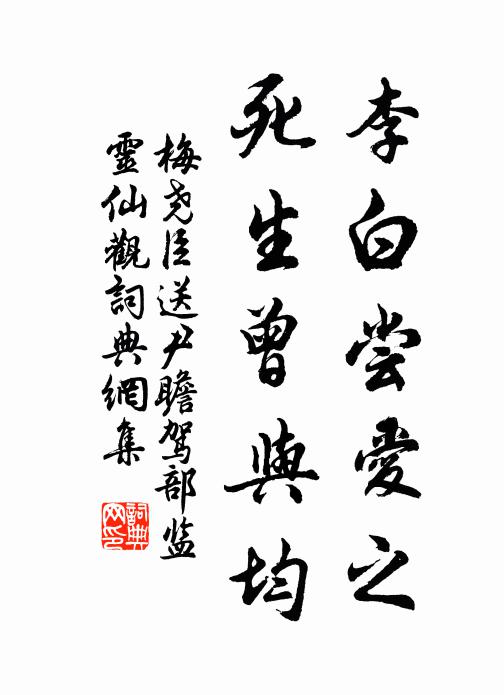 李白尝愛之
死生曾與均
梅尧臣送尹瞻駕部监
靈仙觀詞典網集
詞典网印